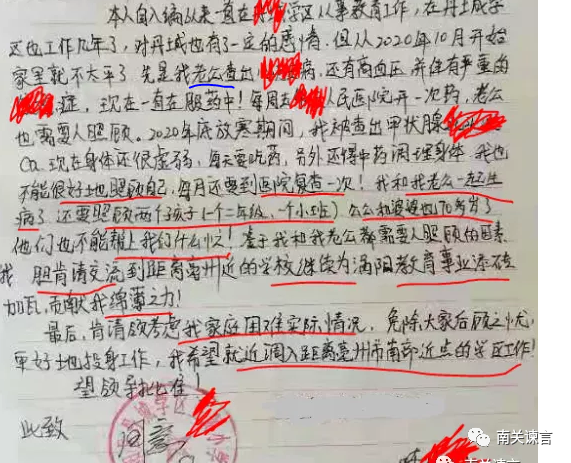 本人自入编以来一直在学区从事教育工作,在丹土城子
区也工作几年了,对丹城也有了一定的感情,但从2020年10月开始
家里就不太平了,先是我老公查出病,还有高血压并伴有严重的
症,现在一直在服药中!每周去人民医院开一次药,老公
也需要人照顾。2020年底放寒假期间,我被查出甲状腺
Ca.现在身体还很虚弱,每天要吃药,另外还得中药调理身体,我也
不能很好地照顾自己,每月还要到医院复查一次!我和我老公一起生
病了,还要照顾两个孩子(一个二年级,一个小班)公公和婆婆也70多岁了
他们也不能帮上我们什么忙!基于我和我老公都需要人照顾的因素
我恳请交流到距离亳州近的学校继续为涡阳教育事业添砖
加瓦,贡献我绵薄之力!
最后,肯请领考虑我家庭困难实际情况,免除大家后顾之忧,
更好地投身工作,我希望就近调入距离亳州市南部近点的学区工作!
望领导批准!
此致
同意
南关谏言
南关谏言